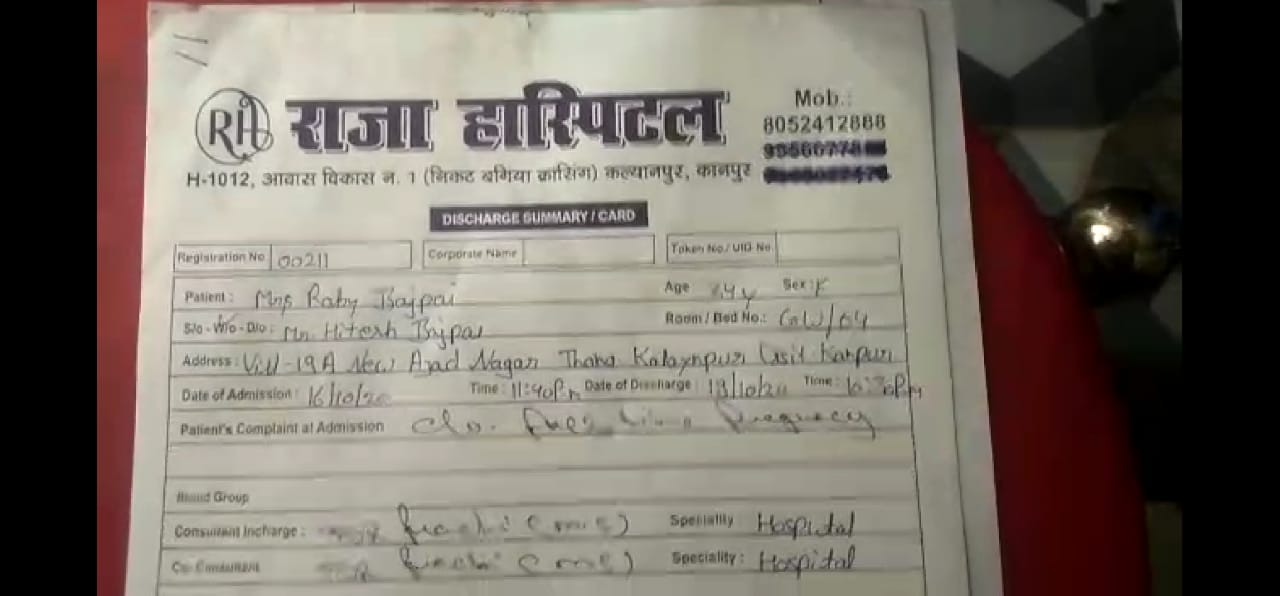 RH राजा हास्पिटल
Mob.:
8052412888
H-1012, आवास विकास न. 1 (निकट बगिया क्रासिंग) कल्यानपुर, कानपुर
DISCHARGE SUMMARY / CARD
Registration No 00211 Corporate Name Token No./ UID No.
Patient : Mrs Baby Bajpai Age Sex : F
S/o - W/o - D/o : Mr. Hitesh Bajpai Room / Bed No.: GW/04
Address : Vill-19A New Azad Nagar Thana Kalaynpur Kanpur
Date of Admission : 16/10/20 Time : 11:40Pm Date of Discharge : 19/10/20 Time :
Patient's Complaint at Admission C/o.
Blood Group
Consultant Incharge : Speciality Hospital
Co-Consultant Speciality : Hospital